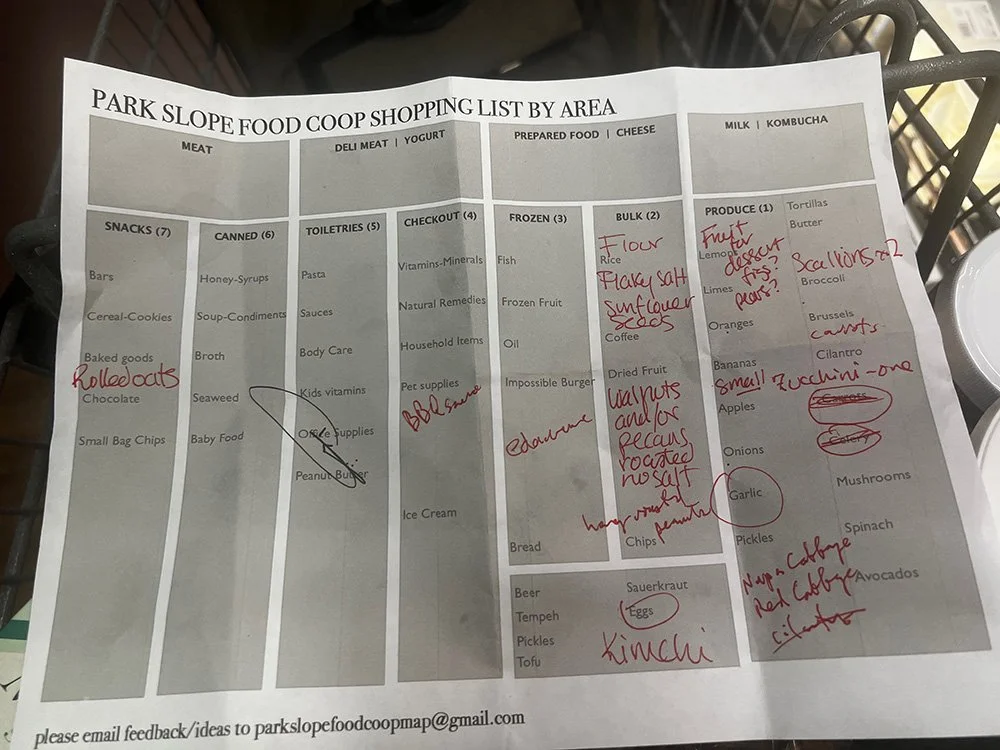 PARK SLOPE FOOD COOP SHOPPING LIST BY AREA
MEAT
DELI MEAT | YOGURT
PREPARED FOOD | CHEESE
MILK | KOMBUCHA
SNACKS (7)
Bars
Cereal-Cookies
Baked goods
Rolled oats
Chocolate
Small Bag Chips
CANNED (6)
Honey-Syrups
Soup-Condiments
Broth
Seaweed
Baby Food
TOILETRIES (5)
Pasta
Sauces
Body Care
Kids vitamins
Office Supplies
Peanut Butter
CHECKOUT (4)
Vitamins-Minerals
Natural Remedies
Household Items
Pet supplies
BBQ sauce
Ice Cream
FROZEN (3)
Fish
Frozen Fruit
Oil
Impossible Burger
edamame
Bread
BULK (2)
Flour
Rice
Flaky salt
sunflower
seeds
Coffee
Dried Fruit
walnuts
and/or
pecans
roasted
no salt
honey roasted
peanuts
Chips
Beer
Tempeh
Pickles
Tofu
Sauerkraut
Eggs
Kimchi
PRODUCE (1)
Fruit
for
Lemons
dessert
figs?
Limes
pears?
Oranges
Bananas
small zucchini-one
Apples
Onions
Garlic
Pickles
Napa Cabbage
Red Cabbage
cilantro
Tortillas
Butter
Scallions x2
Broccoli
Brussels
carrots
Cilantro
Carrots
Celery
Mushrooms
Spinach
Avocados
please email feedback/ideas to parkslopefoodcoopmap@gmail.com